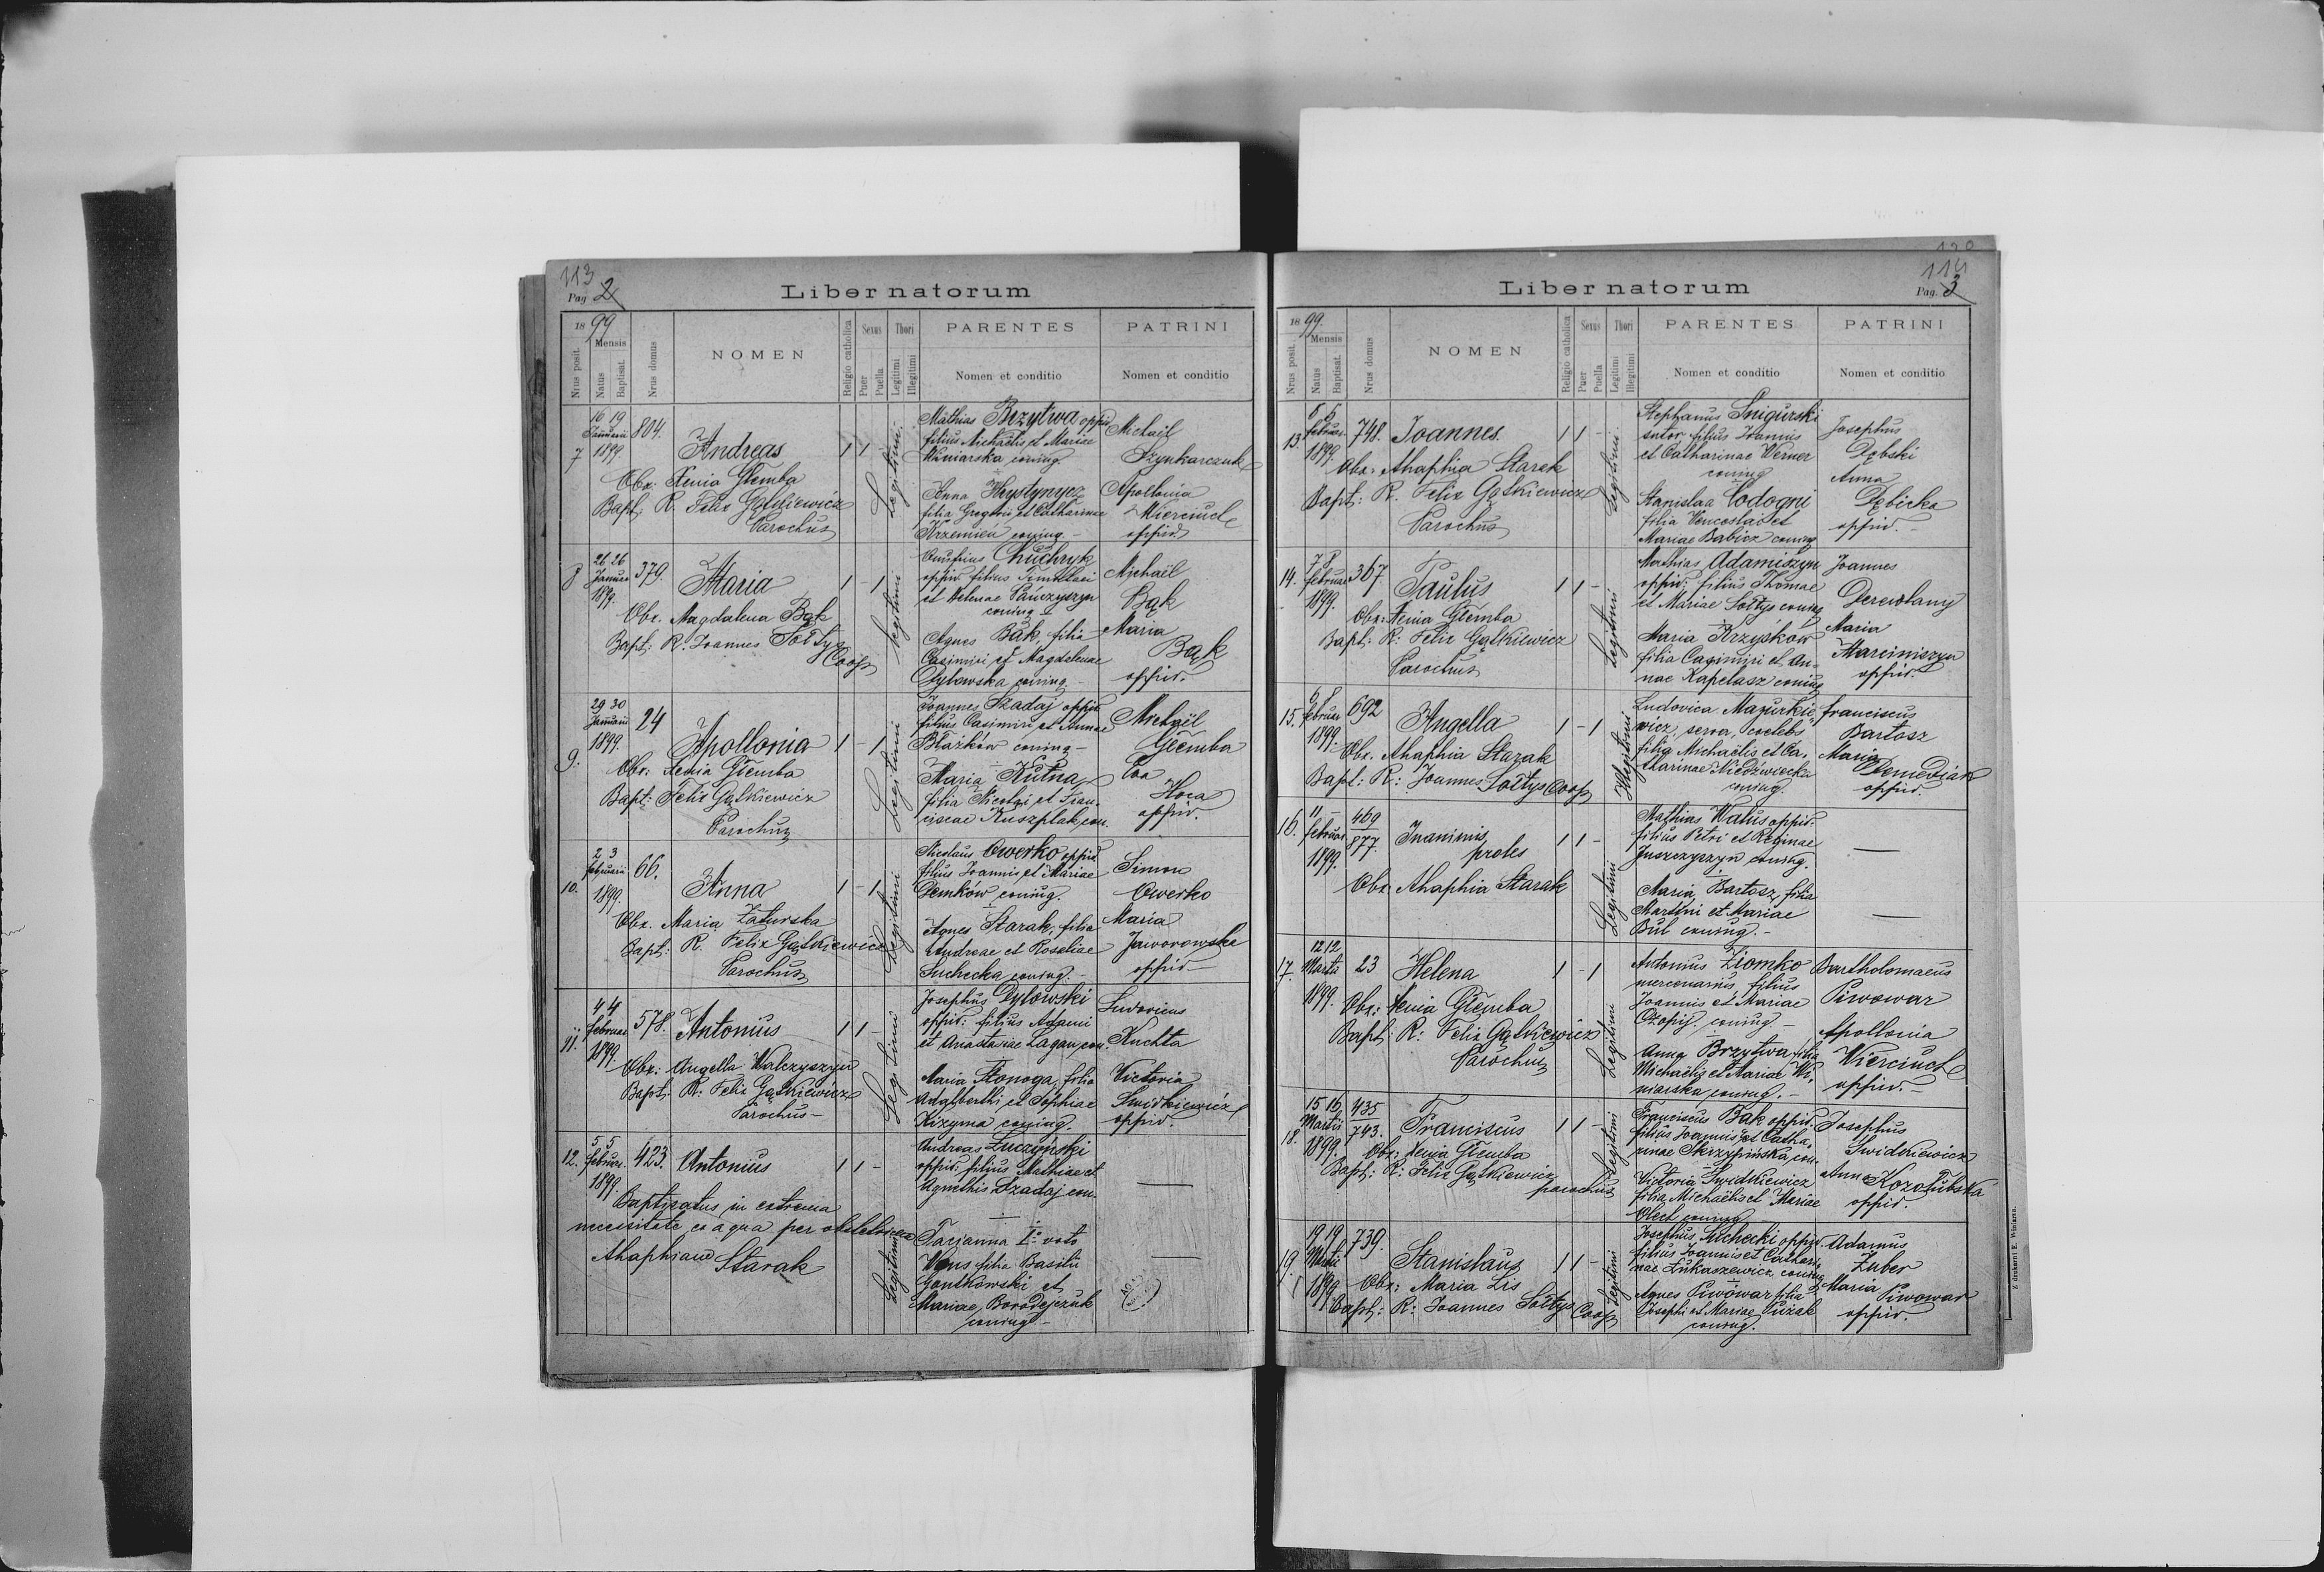 113
Pag 2
Liber natorum
18 99
Mensis
Nrus posit.
Natus
Baptisat.
Nrus domus
NOMEN
Religio catholica
Sexus
Puer
Puella
Thori
Legitimi
Illegitimi
PARENTES
Nomen et conditio
PATRINI
Nomen et conditio
7
16 19
Januarii
1899
804.
Andreas
1 1 -
Obx: Xenia Głemba
Bapt: R. Felix Gątkiewicz
Parochus
Legitimi
Mathias Brzytwa oppid
filius Michaëlis et Mariae
Winiarska coniug.
Anna Hrystynycz
filia Gregorii et Catharinae
Krzemień coniug. -
Michaël
Szynkarczuk
Apollonia
Wierciuch
oppid.
8
26 26
Januar
1899.
379.
Maria
1 - 1
Obx. Magdalena Bąk
Bapt: R. Joannes Sołtys
Coop
Legitimi
Chuchryk
oppid filius
et Helenae Panczyszyn
coniug
Agnes Bąk, filia
Casimiri et Magdalenae
Dylowska coniug. -
Michaël
Bąk
Maria
Bąk
oppid.
9.
29 30
Januarii
1899.
24
Apollonia
1 - 1
Obx: Xenia Głemba
Bapt: Felix Gątkiewicz
Parochus
Legitimi
Joannes Szadaj oppid
filius Casimiri et Annae
Błażków coniug -
Maria Kutna,
filia Nicolai et Fran-
ciscae Kuszplak, con.
Michaël
Głemba
Eva
Hoca
oppid.
10.
2 3
februarii
1899.
66.
Anna
1 - 1
Obx. Maria Zaturska
Bapt: R. Felix Gątkiewicz
Parochus
Legitimi
Nicolaus Owerko oppid
filius Joannis et Mariae
Demków coniug.
Agnes Starak, filia
Andreae et Rosaliae
Suchecka coniug. -
Simon
Owerko
Maria
Jaworowska
oppid -
11.
4 4
februar
1899.
578.
Antonius
1 1 -
Obx: Angella Walczyszyn
Bapt: R: Felix Gątkiewicz
Parochus -
Legitimi
Josephus Dylowski
oppid: filius Adami
et Anastasiae Łagan, con.
Maria Stonoga, filia
Adalberthi et Sophiae
Kizyma coniug.
Ludovicus
Kuchta
Victoria
Swidkiewicz
oppid.
12.
5 5
februar.
1899
423.
Antonius
1 1 -
Baptisatus in extrema
necessitate, ex aqua per obstetricem
Ahaphiam Starak
Legitimi
Andreas Łuczyński
oppid: filius Mathiae et
Agnethis Szadaj con.
Tacianna Iº voto
Wons filia Basilii
Gontkowski et
Mariae Borodejczuk
coniug. -
120
114
Pag. 3
Liber natorum
18 99.
Mensis
Nrus posit.
Natus
Baptisat.
Nrus domus
NOMEN
Religio catholica
Sexus
Puer
Puella
Thori
Legitimi
Illegitimi
PARENTES
Nomen et conditio
PATRINI
Nomen et conditio
13.
5 6
februar.
1899.
748.
Joannes.
1 1 -
Obx: Ahaphia Starak
Bapt: R. Felix Gątkiewicz
Parochus
Legitimi
Stephanus Śnigurski
sutor, filius Joannis
et Catharinae Werner
coniug
Stanislaa Codogni
filia Venceslai et
Mariae Babicz coniug
Josephus
Dębski
Anna
Dębicka
oppid. -
14.
7 8
februar
1899.
367
Paulus
1 1 -
Obx: Xenia Głemba
Bapt: R: Felix Gątkiewicz
Parochus
Legitimi
Mathias Adamiszyn
oppid: filius Thomae
et Mariae Sołtys coniug
Maria Krzyśków
filia Casimiri et An-
nae Kapelasz coniug
Joannes
Derewlany
Maria
Marciniszyn
oppid.
15.
6 8
februar
1899.
692
Angella
1 - 1
Obx. Ahaphia Starak
Bapt: R: Joannes Sołtys Coop
Illegitimi
Ludovica Mazurkie-
wicz, serva, coelebs
filia Michaëlis et Ca-
tharinae Niedźwiecka
coniug.
Franciscus
Bartosz
Maria
Demediak
oppid.
16.
11 -
februar
1899.
469
877.
Inanimis
proles
1 1 -
Obx: Ahaphia Starak
Legitimi
Mathias Watus oppid.
filius Petri et Reginae
Juszczyszyn coniug.
Maria Bartosz, filia
Martini et Mariae
Bul coniug. -
17.
12 12
Martii
1899.
23
Helena
1 - 1
Obx: Xenia Głemba
Bapt: R: Felix Gątkiewicz
Parochus
Legitimi
Antonius Ziomko
mercenarius, filius
Joannis et Mariae
Czopij. coniug -
Anna Brzytwa, filia
Michaëlis et Mariae Wi-
niarska coniug. -
Bartholomaeus
Piwowar
Apollonia
Wierciuch
oppid. -
18.
15 16
Martii
1899.
435
743.
Franciscus
1 1 -
Obx: Xenia Głemba
Bapt: R: Felix Gątkiewicz
parochus
Legitimi
Franciscus Bąk oppid.
filius Joannis et Catha-
rinae Skrzypińska, con.
Victoria Swidkiewicz
filia Michaëlis et Mariae
Olech coniug
Josephus
Swidkiewicz
Anna Kozołubska
oppid.
19.
19 19
Martii
1899
739.
Stanislaus
1 1 -
Obx: Maria Lis
Bapt: R: Joannes Sołtys Coop
Legitimi
Josephus Suchecki oppid.
filius Joannis et Cathari-
nae Łukaszewicz coniug
Agnes Piwowar filia
Josephi et Mariae Puzak
coniug.
Adamus
Zuber
Maria Piwowar
oppid.
Z drukarni E. Winiarza.